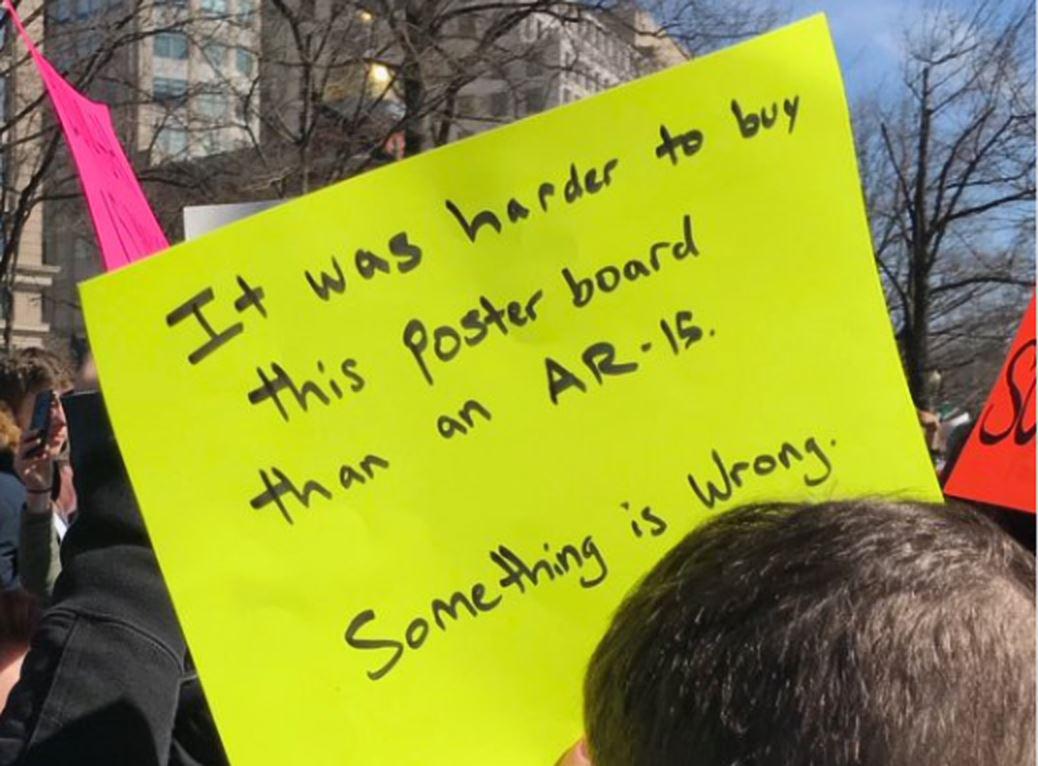 It was harder to buy
this Poster board
than an AR-15.
Something is Wrong.